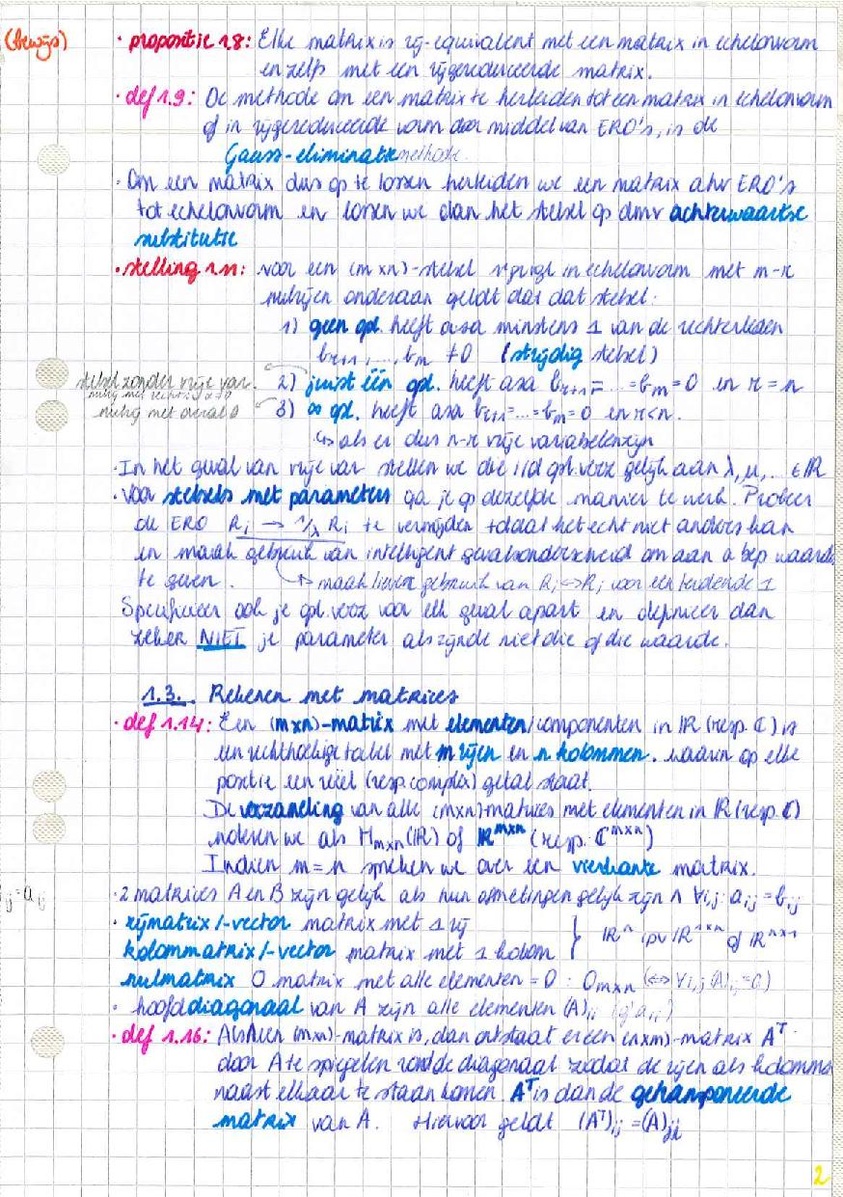 (bewijs)
· propositie 1.8: Elke matrix is rij-equivalent met een matrix in echelonvorm
en zelfs met een rijgereduceerde matrix.
· def 1.9: De methode om een matrix te herleiden tot een matrix in echelonvorm
of in rijgereduceerde vorm door middel van ERO's, is de
Gauss-eliminatiemethode.
· Om een matrix dus op te lossen herleiden we een matrix ahv ERO's
tot echelonvorm en lossen we dan het stelsel op dmv achterwaartse
substitutie
· stelling 1.11: voor een (m×n)-stelsel in echelonvorm met m-r
nulrijen onderaan geldt dat dat stelsel:
1) geen opl. heeft asa minstens 1 van de rechterleden
b_{r+1}, ..., b_m ≠ 0 (strijdig stelsel)
stelsel zonder vrije var. 2) juist één opl. heeft asa b_{r+1} = ... = b_m = 0 en r = n
nulrij met overal 0 3) ∞ opl. heeft asa b_{r+1} = ... = b_m = 0 en r<n.
↳ als er dus n-r vrije variabelen zijn
· In het geval van vrije var stellen we die i/d opl.verz gelijk aan λ, μ, ... ∈ ℝ
· Voor stelsels met parameters ga je op dezelfde manier te werk. Probeer
de ERO R_i → 1/λ R_i te vermijden totdat het echt niet anders kan
en maak gebruik van intelligent gevalsonderscheid om aan a bep waarde
te geven. ↳ maak liever gebruik van R_i ↔ R_j voor een leidende 1
Specifieer ook je opl.verz voor elk geval apart en definieer dan
zeker NIET je parameter als zijnde niet die of die waarde.
1.3. Rekenen met matrices
· def 1.14: Een (m×n)-matrix met elementen/componenten in ℝ (resp. ℂ) is
een rechthoekige tabel met m rijen en n kolommen, waarin op elke
positie een reëel (resp. complex) getal staat.
De verzameling van alle (m×n)-matrices met elementen in ℝ (resp. ℂ)
noteren we als M_{m×n}(ℝ) of ℝ^{m×n} (resp. ℂ^{m×n})
Indien m = n spreken we over een vierkante matrix.
· 2 matrices A en B zijn gelijk als hun afmetingen gelijk zijn ∧ ∀i,j: a_{ij} = b_{ij}
· rijmatrix/-vector matrix met 1 rij
kolommatrix/-vector matrix met 1 kolom } ℝ^n ipv ℝ^{1×n} of ℝ^{n×1}
nulmatrix O matrix met alle elementen = 0 : O_{m×n} (⇔ ∀i,j (A)_{ij} = 0)
· hoofddiagonaal van A zijn alle elementen (A)_{ii} (of a_{ii})
· def 1.16: Als A een (m×n)-matrix is, dan ontstaat er een (n×m)-matrix A^T
door A te spiegelen rond de diagonaal zodat de rijen als kolommen
naast elkaar te staan komen. A^T is dan de getransponeerde
matrix van A. Hiervoor geldt (A^T)_{ij} = (A)_{ji}
2